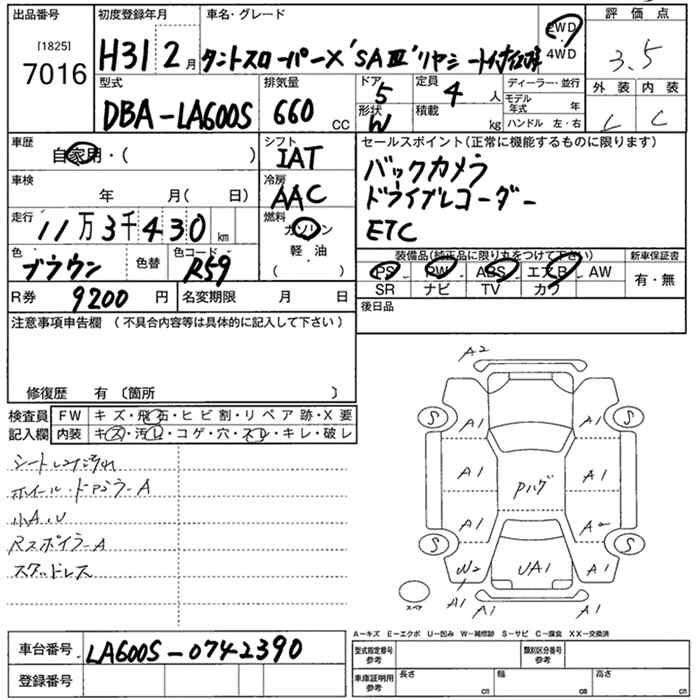 出品番号 初度登録年月 車名・グレード 評価点
[1825]
7016 H31 2月 タントスローパーX"SAⅢ"リヤシート付仕様 2WD・4WD 3.5
型式 排気量 ドア 5 定員 4人 ディーラー・並行 外装 内装
DBA-LA600S 660 CC 形状 W 積載 kg モデル年式 年 C
ハンドル 左・右
車歴 自家用・( ) シフト IAT セールスポイント(正常に機能するものに限ります)
車検 年 月( 日) 冷房 AAC バックカメラ
ドライブレコーダー
走行 11万3千430km 燃料 ガソリン ETC
色 ブラウン 色替 色コード R59 軽油 ( )
装備品(純正品に限り丸をつけて下さい) 新車保証書
PS PW ABS エアB AW 有・無
SR ナビ TV カワ
R券 9200円 名変期限 月 日 後日品
注意事項申告欄(不具合内容等は具体的に記入して下さい)
修復歴 有〔箇所 〕
検査員記入欄 FW キズ・飛石・ヒビ割・リペア跡・X要
内装 キズ・汚レ・コゲ・穴・スレ・キレ・破レ
シートレール汚れ
ホイール・ドアミラーA
小A、U
Rスポイラー A
スタッドレス
A2
S A1 A1 S
A1 Pハゲ A1
A1 A2
S W2 UA1 A1 S
スペア A1 A1
A-キズ E-エクボ U-凹み W-補修跡 S-サビ C-腐食 XX-交換済
車台番号 LA600S-0742390
登録番号
型式指定番号 参考 類別区分番号 参考
車庫証明用 参考 長さ cm 幅 cm 高さ cm